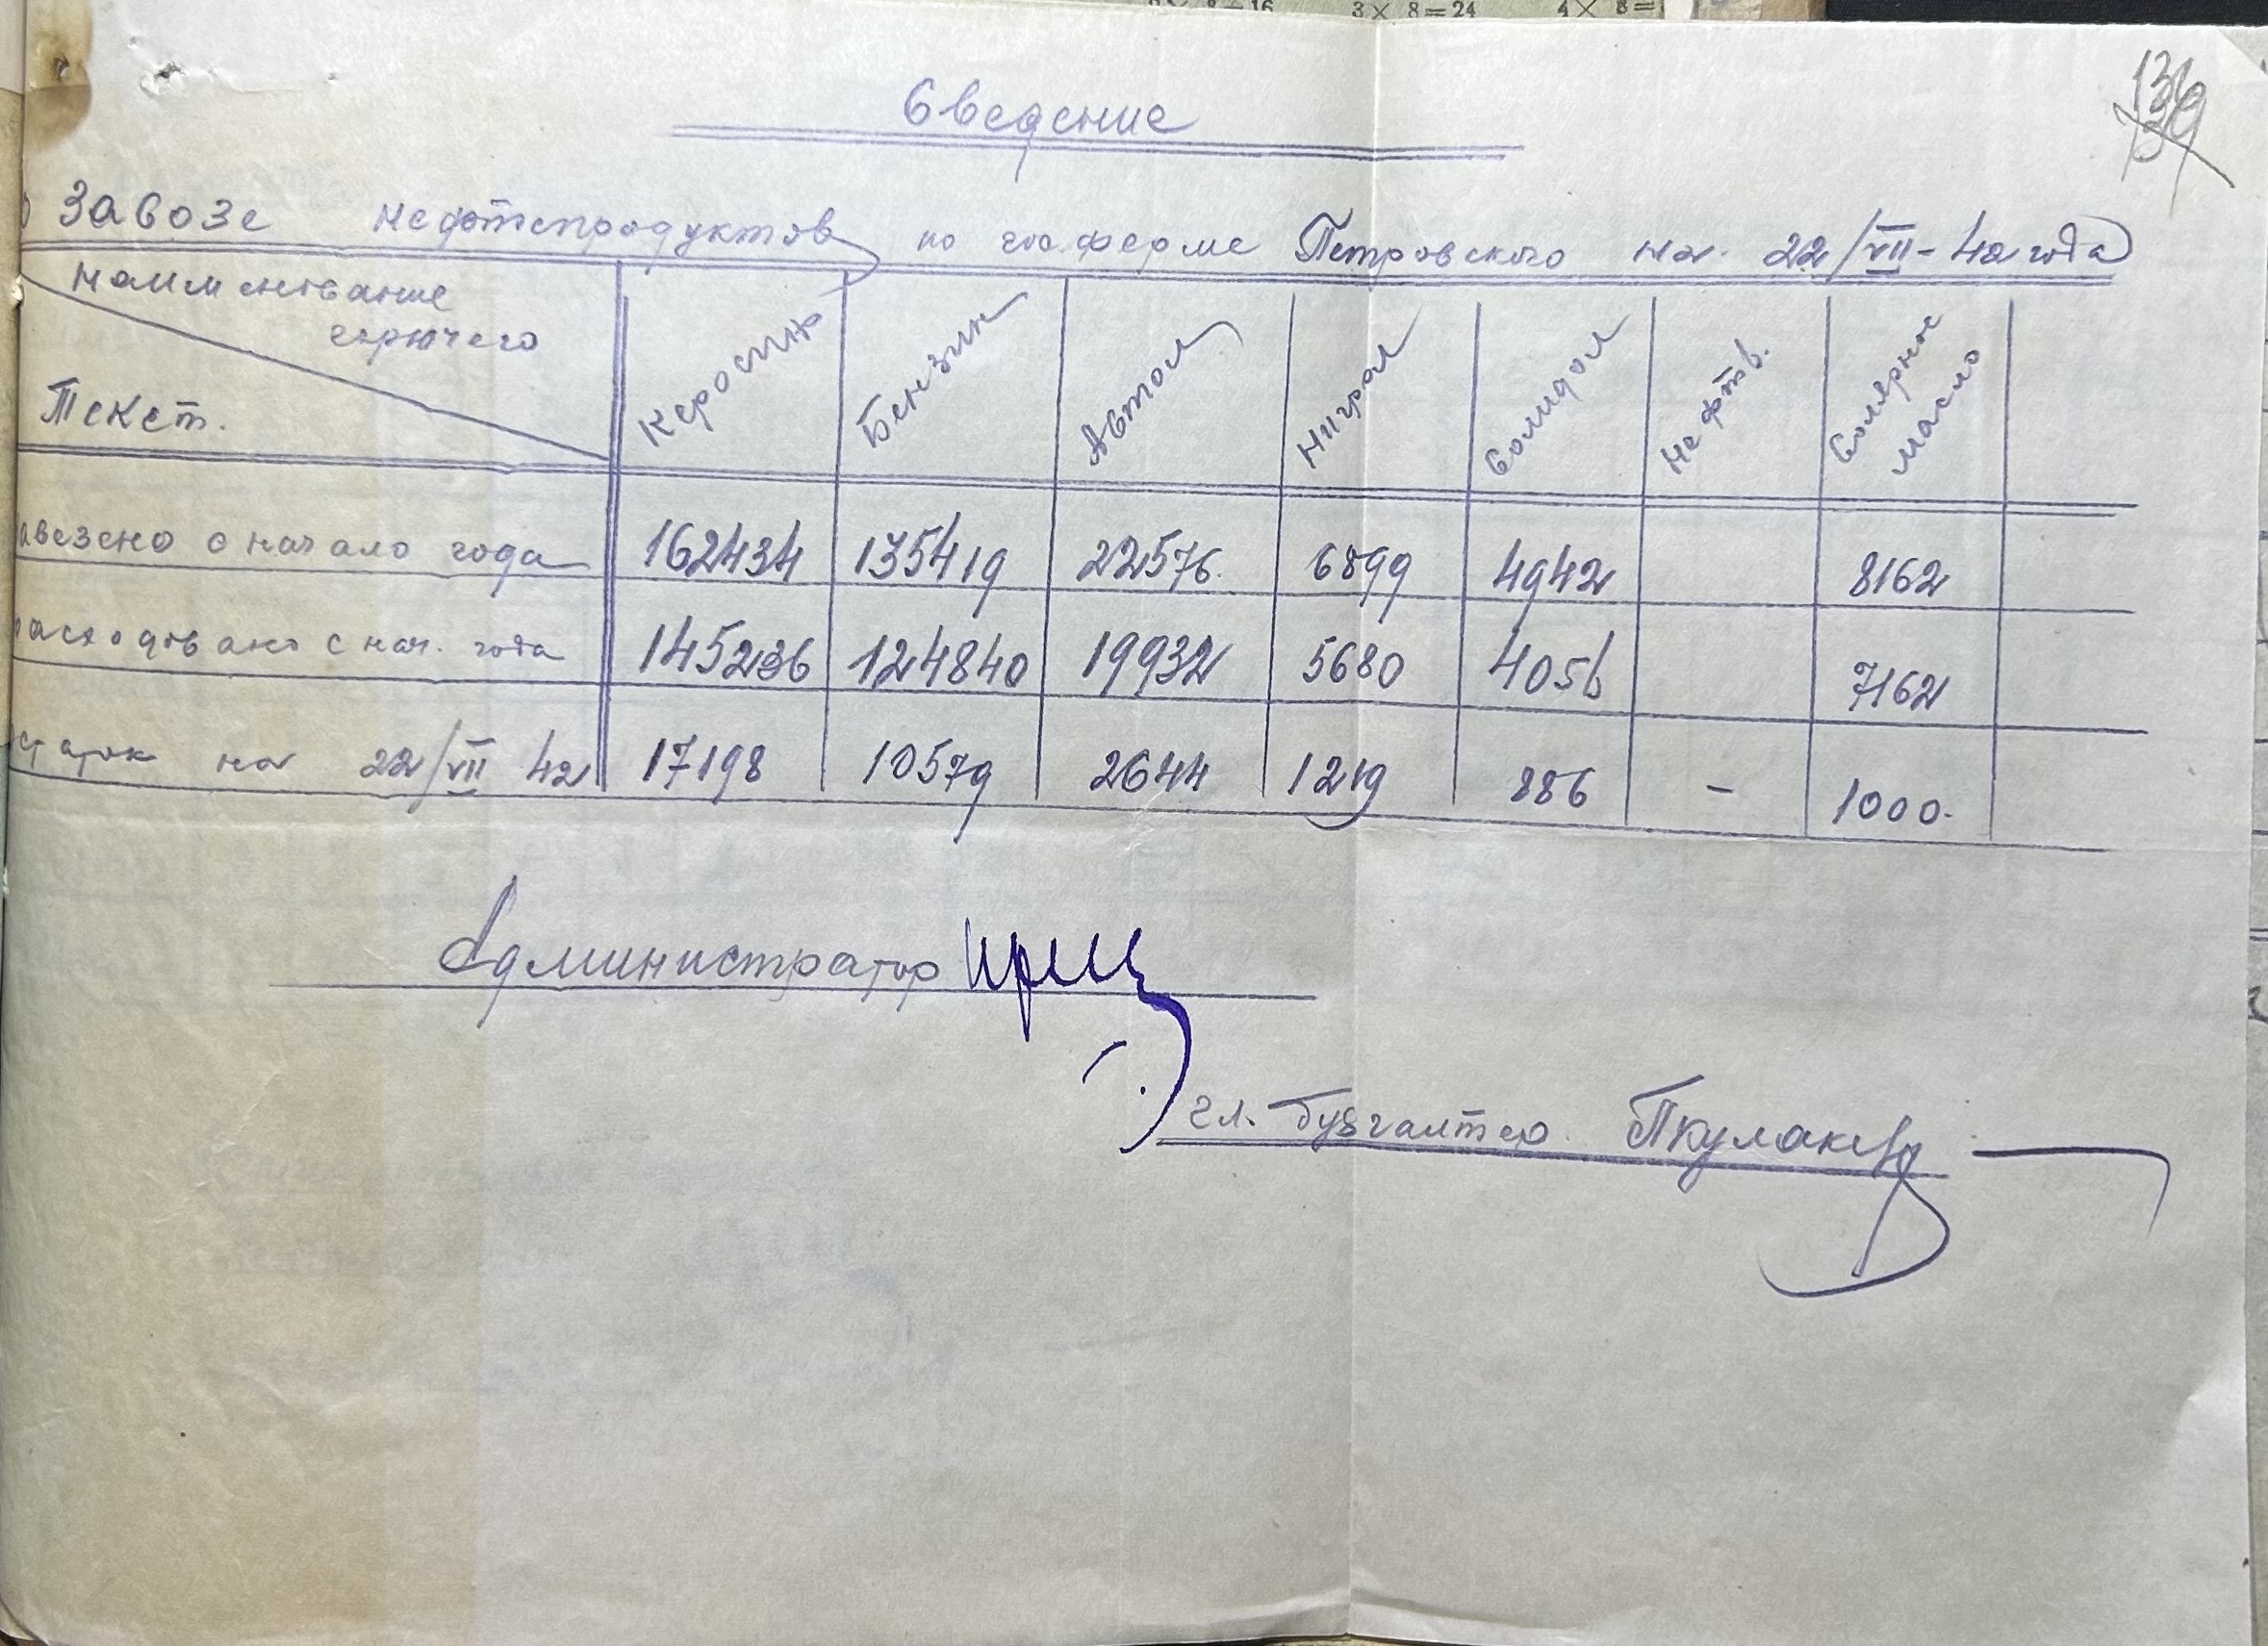 2 × 8=16 3 × 8=24 4 × 8=
139
Сведение
о завозе нефтепродуктов по гос.ферме Петровского на 22/VII-42 года
наименование
горючего
Текст.
Керосин Бензин Автол Нигрол Солидол Нефть. Солярное масло
авезено с начало года 162434 135419 22576 6899 4942 8162
расходовано с нач. года 145236 124840 19932 5680 4056 7162
статок на 22/VII 42 17198 10579 2644 1219 886 - 1000.
Администратор
гл. бухгалтер